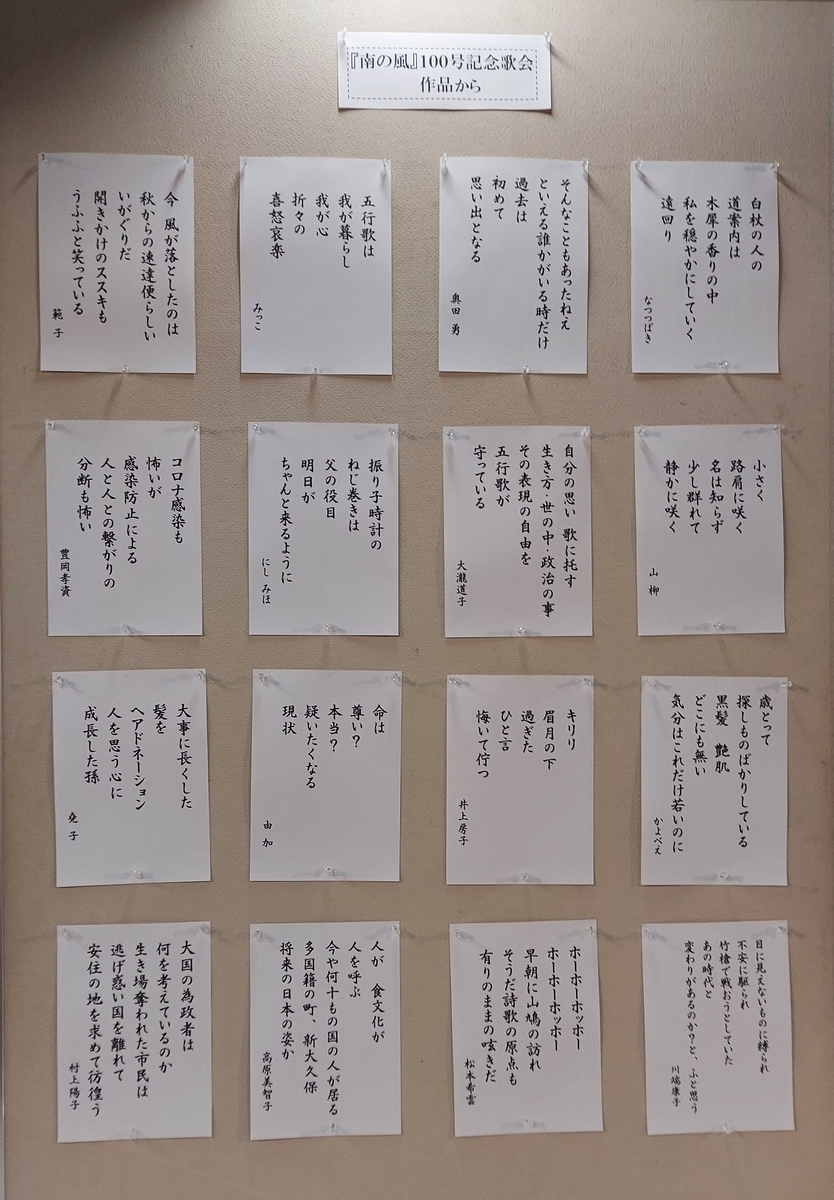 『南の風』100号記念歌会
作品から
白杖の人の
道案内は
木犀の香りの中
私を穏やかにしていく
遠回り
なつつばき
そんなこともあったねえ
といえる誰かがいる時だけ
過去は
初めて
思い出となる
奥田 勇
五行歌は
我が暮らし
我が心
折々の
喜怒哀楽
みっこ
今 風が落としたのは
秋からの速達便らしい
いがぐりだ
開きかけのススキも
うふふと笑っている
範子
小さく
路肩に咲く
名は知らず
少し群れて
静かに咲く
山柳
自分の思い 歌に托す
生き方・世の中・政治の事
その表現の自由を
五行歌が
守っている
大瀧道子
振り子時計の
ねじ巻きは
父の役目
明日が
ちゃんと来るように
にし みほ
コロナ感染も
怖いが
感染防止による
人と人との繋がりの
分断も怖い
豊岡孝資
歳とって
探しものばかりしている
黒髪 艶肌
どこにも無い
気分はこれだけ若いのに
かよべえ
キリリ
眉月の下
過ぎた
ひと言
悔いて佇つ
井上房子
命は
尊い?
本当?
疑いたくなる
現状
由加
大事に長くした
髪を
ヘアドネーション
人を思う心に
成長した孫
堯子
目に見えないものに縛られ
不安に駆られ
竹槍で戦おうとしていた
あの時代と
変わりがあるのか?と、ふと思う
川端康子
ホーホーホッホー
ホーホーホッホー
早朝に山鳩の訪れ
そうだ詩歌の原点も
有りのままの呟きだ
松本希雲
人が 食文化が
人を呼ぶ
今や何十もの国の人が居る
多国籍の町、新大久保
将来の日本の姿か
高原美智子
大国の為政者は
何を考えているのか
生き場奪われた市民は
逃げ惑い国を離れて
安住の地を求めて彷徨う
村上陽子